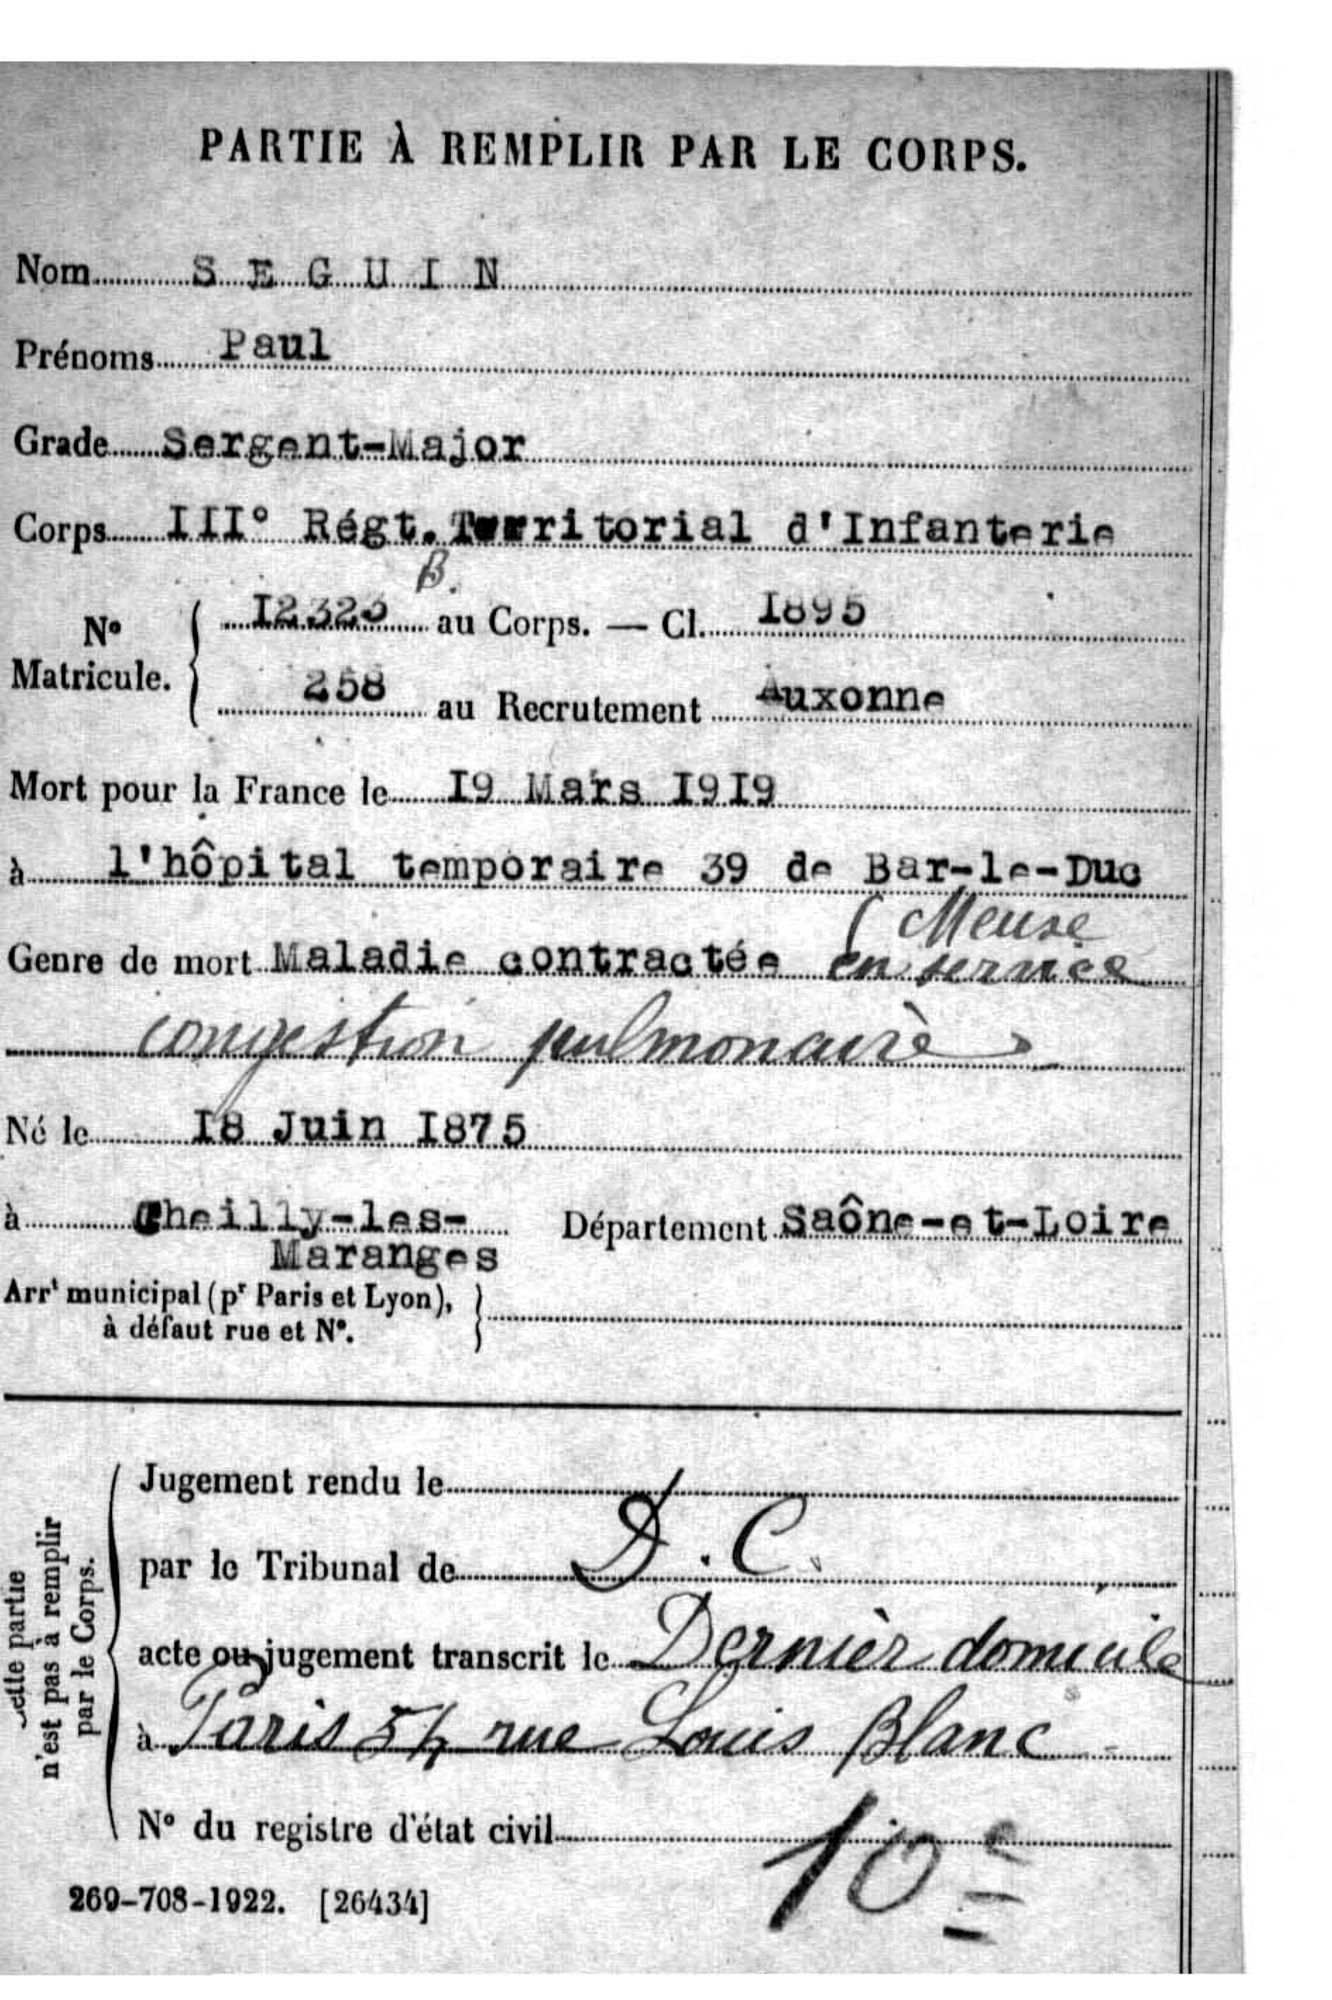 PARTIE À REMPLIR PAR LE CORPS.
Nom SEGUIN
Prénoms Paul
Grade Sergent-Major
Corps III° Régt. Territorial d'Infanterie
B.
N° Matricule. 12323 au Corps. — Cl. 1895
258 au Recrutement Auxonne
Mort pour la France le 19 Mars 1919
à l'hôpital temporaire 39 de Bar-le-Duc
(Meuse
Genre de mort Maladie contractée en service
congestion pulmonaire
Né le 18 Juin 1875
à Cheilly-les-Maranges Département Saône-et-Loire
Arrt municipal (pr Paris et Lyon),
à défaut rue et N°.
Cette partie
n'est pas à remplir
par le Corps.
Jugement rendu le
par le Tribunal de D. C.
acte ou jugement transcrit le Dernier domicile
à Paris 54 rue Louis Blanc
N° du registre d'état civil
10e
269-708-1922. [26434]